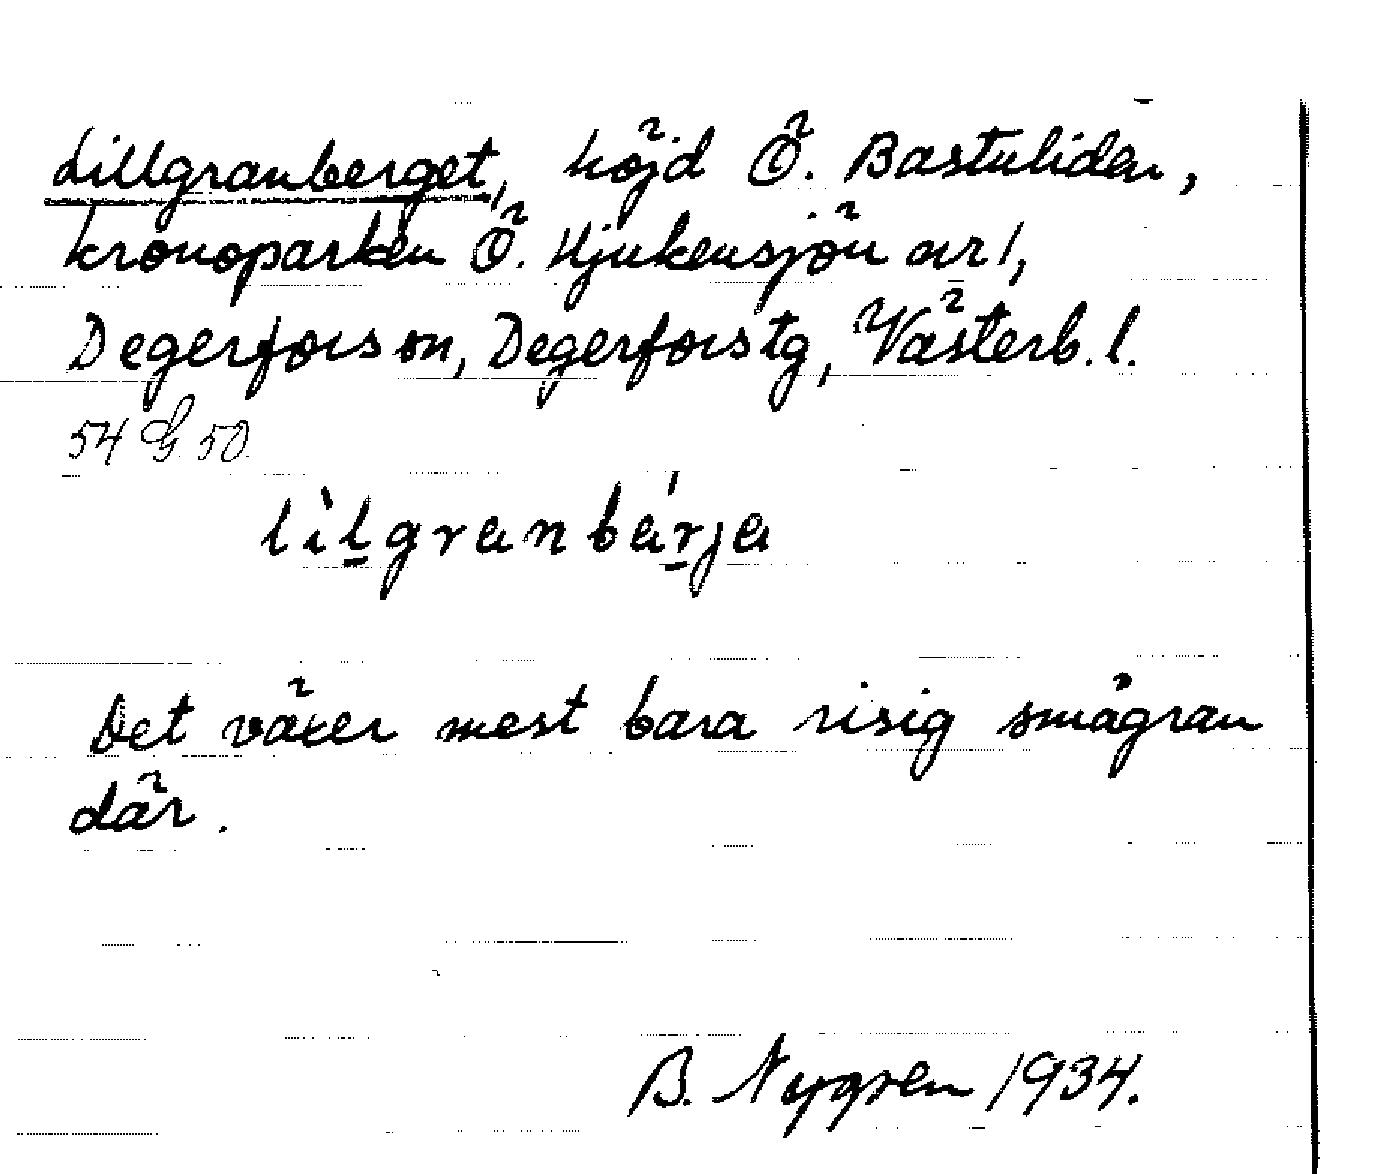 Lillgranberget, höjd Ö. Bastuliden,
kronoparken Ö. Hjukensjön nr 1,
Degerfors sn, Degerfors tg, Västerb. l.
54 G 50
lìlgranbárja
Det växer mest bara risig smågran
där.
B. Nygren 1934.